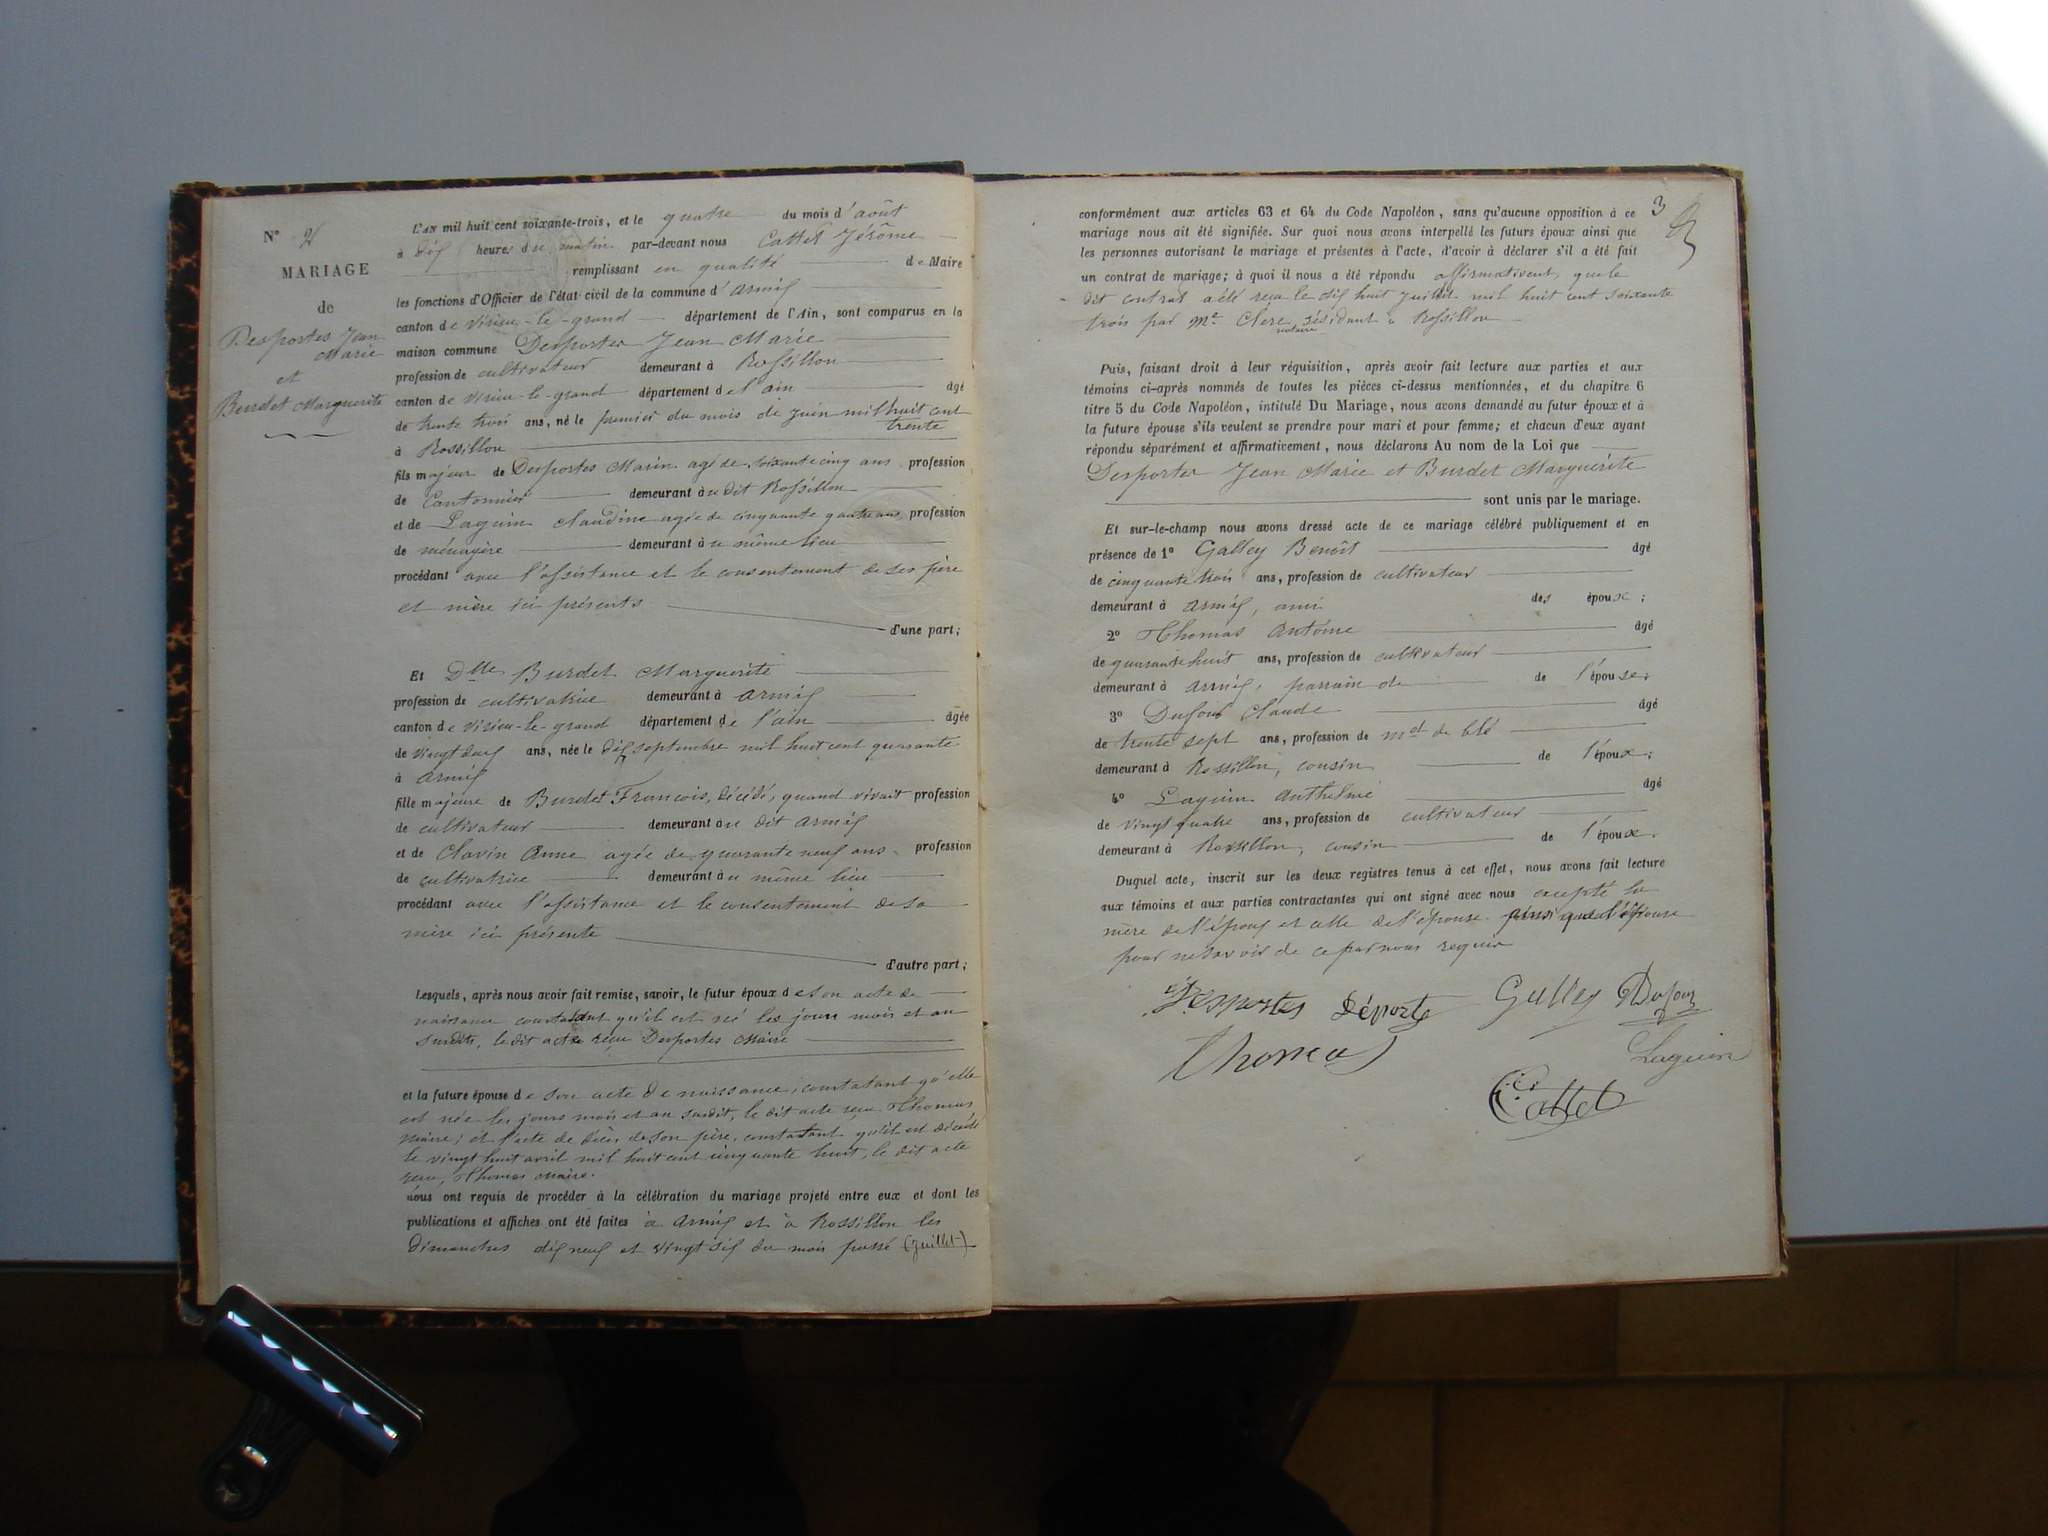 N° 2
MARIAGE
de
Desportes Jean
Marie
et
Burdet Marguerite
L'AN mil huit cent soixante-trois, et le quatre du mois d'août
à dix heures du matin par-devant nous Cattet Jérôme
remplissant en qualité de Maire
les fonctions d'Officier de l'état civil de la commune d'armix
canton de virieu-le-grand département de l'Ain, sont comparus en la
maison commune Desportes Jean Marie
profession de cultivateur demeurant à Rossillon
canton de virieu-le-grand département de l'ain âgé
de trente trois ans, né le premier du mois de juin mil huit cent
trente
à Rossillon
fils majeur de Desportes Marin agé de soixante cinq ans profession
de Cantonnier demeurant au dit Rossillon
et de Laguin Claudine agée de cinquante quatre ans profession
de ménagère demeurant au même lieu
procédant avec l'assistance et le consentement de ses père
et mère ici présents
d'une part;
Et Dlle Burdet Marguerite
profession de cultivatrice demeurant à armix
canton de virieu-le-grand département de l'ain âgée
de vingt deux ans, née le dix septembre mil huit cent quarante
à armix
fille majeure de Burdet Francois, décédé, quand vivait profession
de cultivateur demeurant au dit armix
et de Clavin Anne agée de quarante neuf ans profession
de cultivatrice demeurant au même lieu
procédant avec l'assistance et le consentement de sa
mère ici présente
d'autre part;
Lesquels, après nous avoir fait remise, savoir, le futur époux de son acte de
naissance constatant qu'il est né les jours mois et an
susdits, le dit acte reçu Desportes Maire
et la future épouse de son acte de naissance, constatant qu'elle
est née les jours mois et an susdit, le dit acte reçu Thomas
maire; et l'acte de décès de son père, constatant qu'il est décédé
le vingt huit avril mil huit cent cinquante huit, le dit acte
reçu, Thomas maire.
nous ont requis de procéder à la célébration du mariage projeté entre eux et dont les
publications et affiches ont été faites à armix et à Rossillon les
dimanches dix neuf et vingt six du mois passé (juillet)
3
conformément aux articles 63 et 64 du Code Napoléon, sans qu'aucune opposition à ce
mariage nous ait été signifiée. Sur quoi nous avons interpellé les futurs époux ainsi que
les personnes autorisant le mariage et présentes à l'acte, d'avoir à déclarer s'il a été fait
un contrat de mariage; à quoi il nous a été répondu affirmativent, que le
dit contrat a été reçu le dix huit juillet mil huit cent soixante
trois par Me Clerc résidant à Rossillon
notaire
Puis, faisant droit à leur réquisition, après avoir fait lecture aux parties et aux
témoins ci-après nommés de toutes les pièces ci-dessus mentionnées, et du chapitre 6
titre 5 du Code Napoléon, intitulé Du Mariage, nous avons demandé au futur époux et à
la future épouse s'ils veulent se prendre pour mari et pour femme; et chacun d'eux ayant
répondu séparément et affirmativement, nous déclarons Au nom de la Loi que
Desportes Jean Marie et Burdet Marguerite
sont unis par le mariage.
Et sur-le-champ nous avons dressé acte de ce mariage célébré publiquement et en
présence de 1° Galley Benoît âgé
de cinquante trois ans, profession de cultivateur
demeurant à armix, ami des époux;
2° Thomas antoine âgé
de quarante huit ans, profession de cultivateur
demeurant à armix, parrain de de l'épouse.
3° Dufour Claude âgé
de trente sept ans, profession de md de blé
demeurant à Rossillon, cousin de l'époux;
4° Laguin Anthelme âgé
de vingt quatre ans, profession de cultivateur
demeurant à Rossillon, cousin de l'époux.
Duquel acte, inscrit sur les deux registres tenus à cet effet, nous avons fait lecture
aux témoins et aux parties contractantes qui ont signé avec nous excepté la
mère de l'époux et celle de l'épouse ainsi que l'épouse
pour ne savoir de ce par nous requis
Desportes Déporte Galley Dufour
Thomas Laguin
Cattet